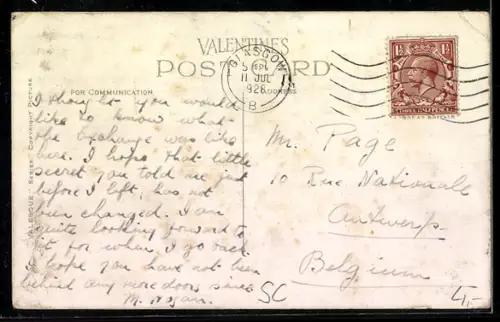 VALENTINES
POST CARD
FOR COMMUNICATION
ADDRESS
GLASGOW
11 JUL
1926
B
I thought you would
like to know what
the exchange was like
here. I hope that little
secret you told me just
before I left, has not
been changed. I am
quite looking forward to
it for when I go back.
I hope you have not been
behind any more doors since
M.
Mr. Page
10 Rue Nationale
Antwerp
Belgium
SC
4,-